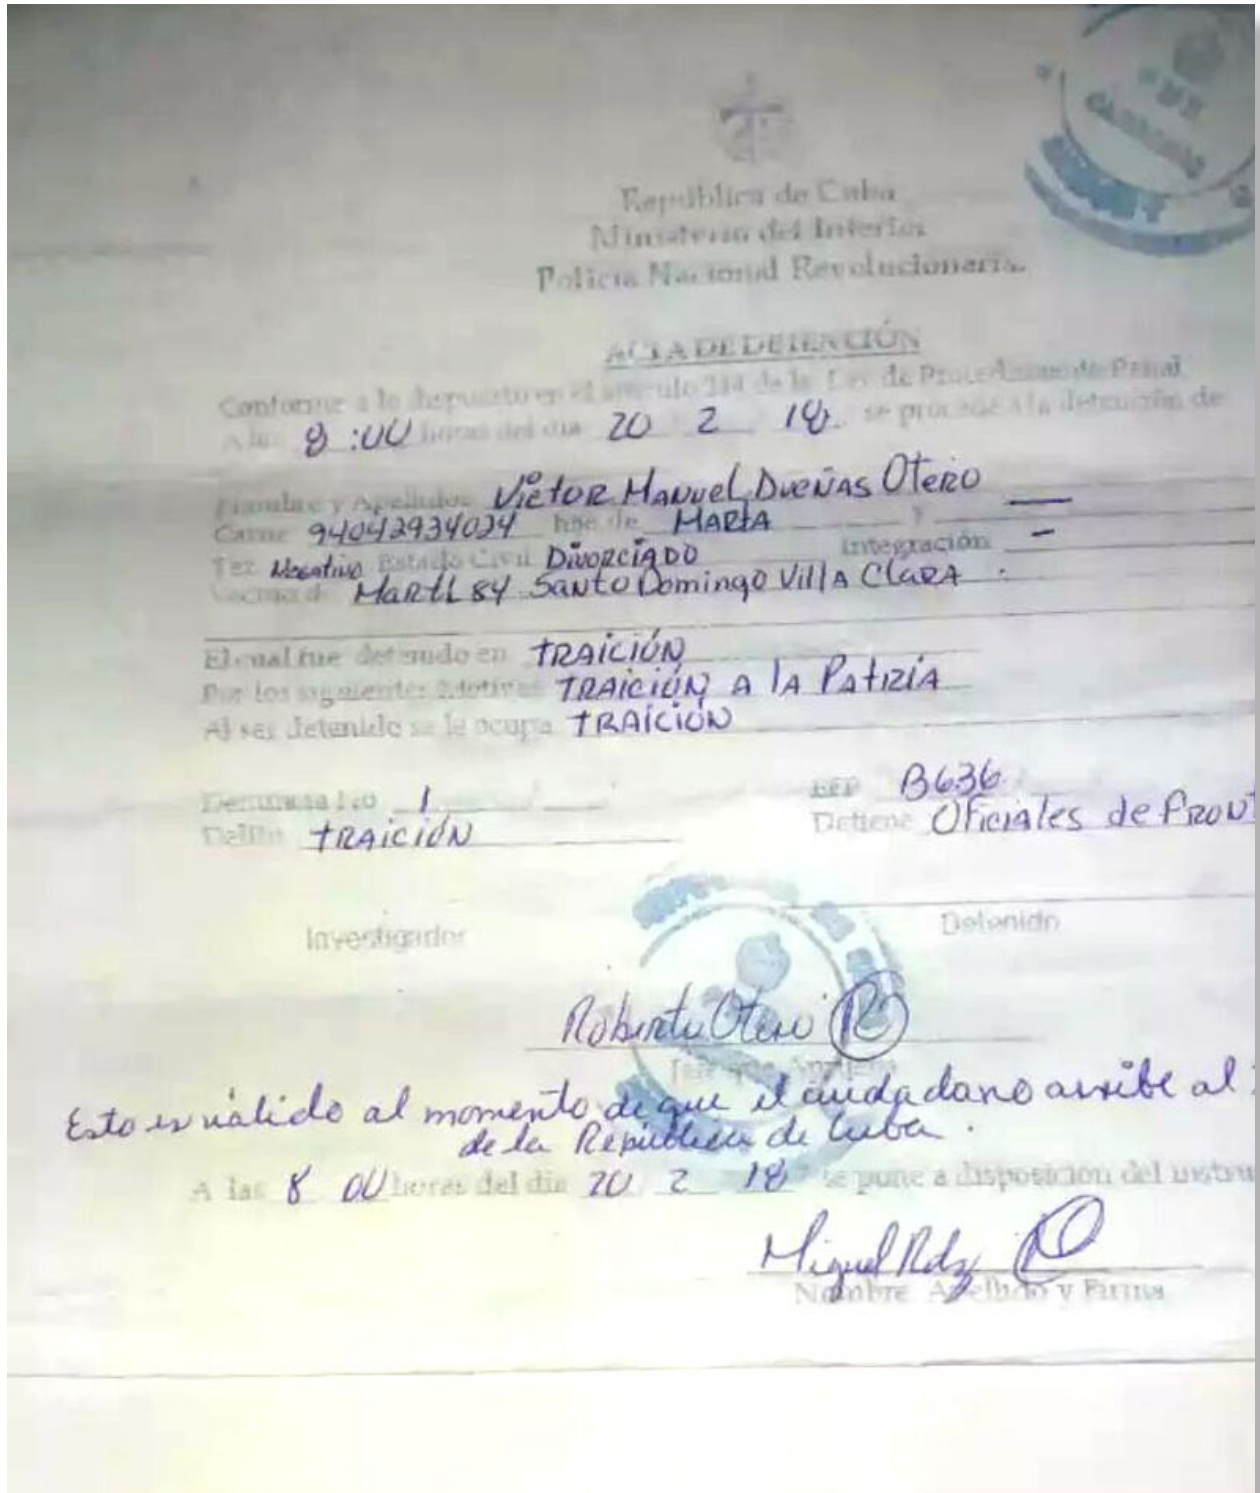 PNR
República de Cuba
Ministerio del Interior
Policía Nacional Revolucionaria.
ACTA DE DETENCIÓN
Conforme a lo dispuesto en el artículo 244 de la Ley de Procedimiento Penal
A las 8:00 horas del día 20 2 18 se procede a la detención de
Nombre y Apellidos Victor Manuel Dueñas Otero
Carne 94042934024 hijo de MARIA y
Tez Negativo Estado Civil DivorciADO Integración -
Vecino de MARTI 84 Santo Domingo Villa Clara.
El cual fue detenido en TRAICIÓN
Por los siguientes Motivos TRAICIÓN A lA PatRIA
Al ser detenido se le ocupa TRAICIÓN
Denuncia No 1 / EFP B636
Delito TRAICIÓN Detiene Oficiales de FRONT
Investigador Detenido
Roberto Otero
Esto es válido al momento de que el ciudadano arribe al
de la República de Cuba.
A las 8 00 horas del día 20 2 18 se pone a disposición del instru
Miguel Rdz
Nombre Apellido y Firma